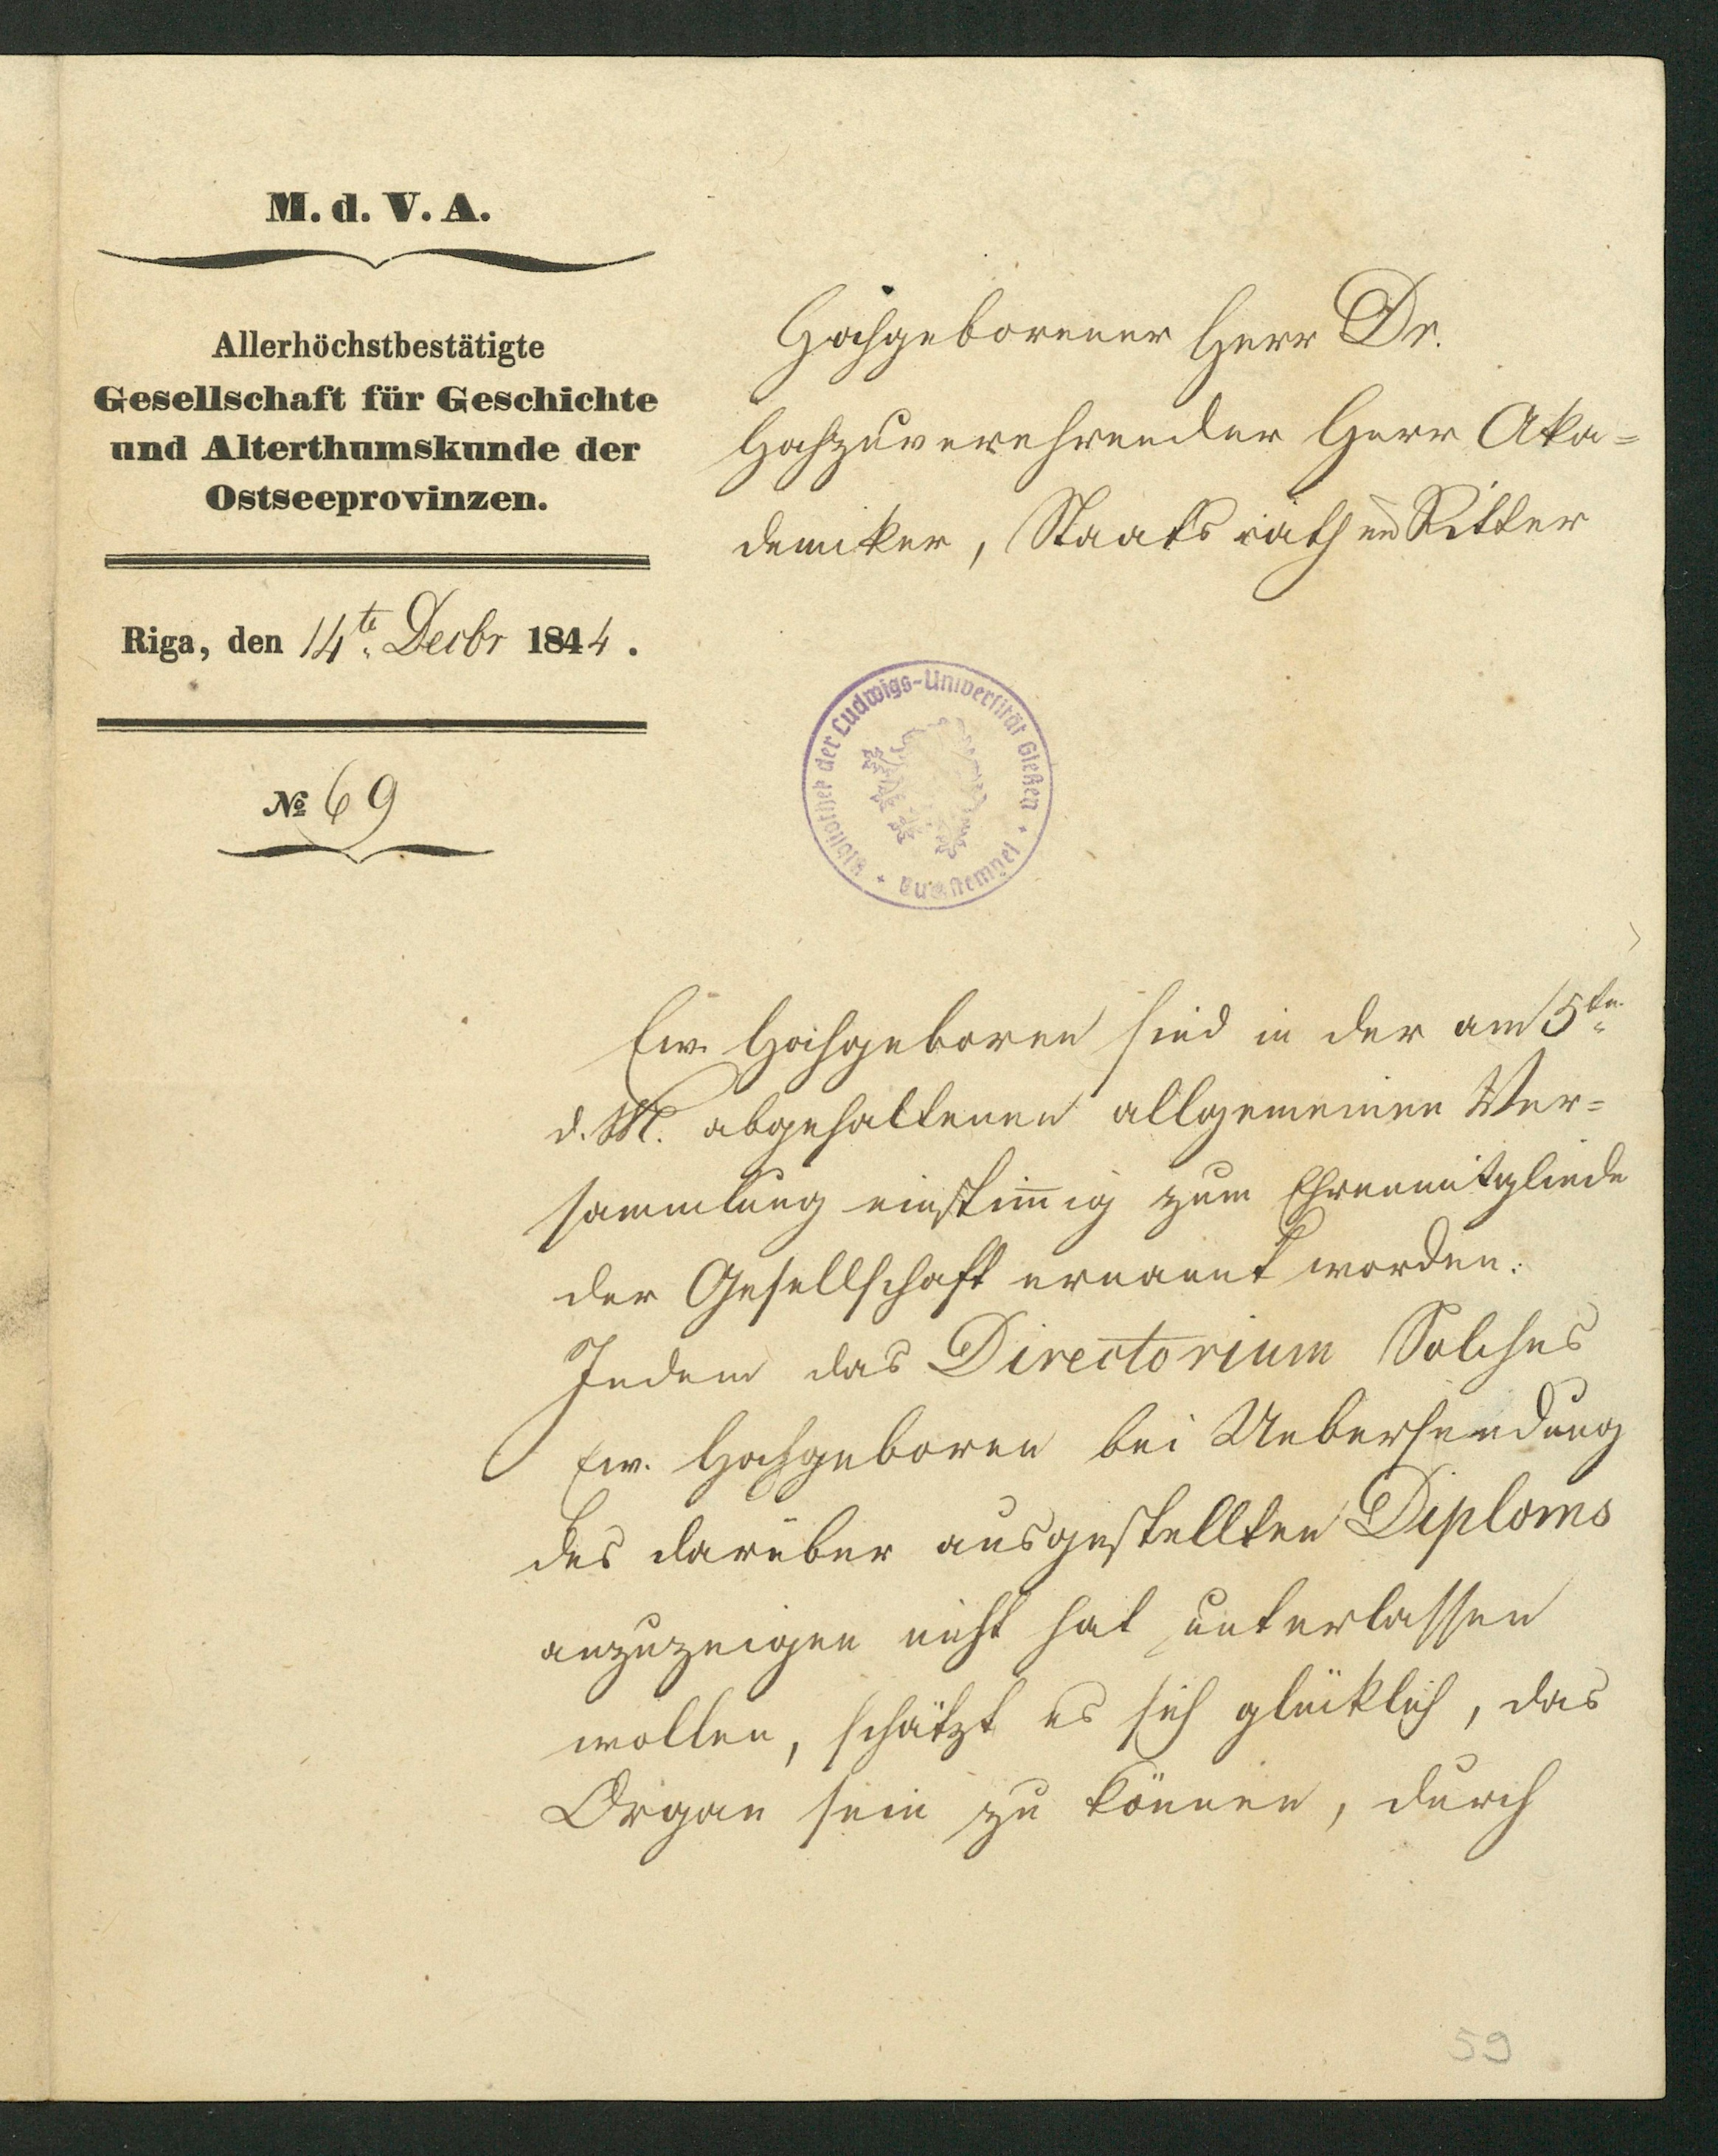 M. d. V. A.
Allerhöchstbestätigte
Gesellschaft für Geschichte
und Alterthumskunde der
Ostseeprovinzen.
Riga, den 14te. Decbr 1844.
№ 69
Hochgeborener Herr Dr.
Hochzuverehrender Herr Aka=
demiker, Staatsrath und Ritter
Bibliothek der Ludwigs-Universität Gießen
Ew. Hochgeboren sind in der am 5ten
d. M. abgehaltenen allgemeinen Ver=
sammlung einstim̅ig zum Ehrenmitgliede
der Gesellschaft ernannt worden.
Indem das Directorium Solches
Ew. Hochgeboren bei Uebersendung
des darüber ausgestellten Diploms
anzuzeigen nicht hat unterlassen
wollen, schätzt es sich glücklich, das
Organ sein zu können, durch
59